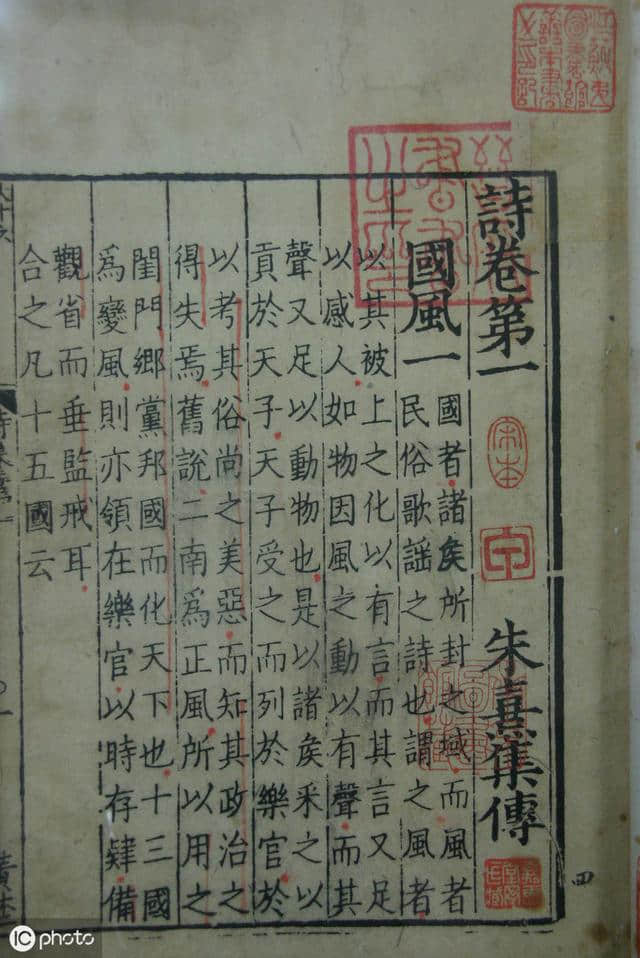 詩卷第一
宋本
朱熹集傳
國風一
國者諸矦所封之域而風者
民俗歌謡之詩也謂之風者
以其被上之化以有言而其言又足
以感人如物因風之動以有聲而其
聲又足以動物也是以諸矦采之以
貢於天子天子受之而列於樂官於
以考其俗尚之美惡而知其政治之
得失焉舊說二南爲正風所以用之
閨門鄉黨邦國而化天下也十三國
爲變風則亦領在樂官以時存肄備
觀省而垂監戒耳
合之凡十五國云
四
IC photo